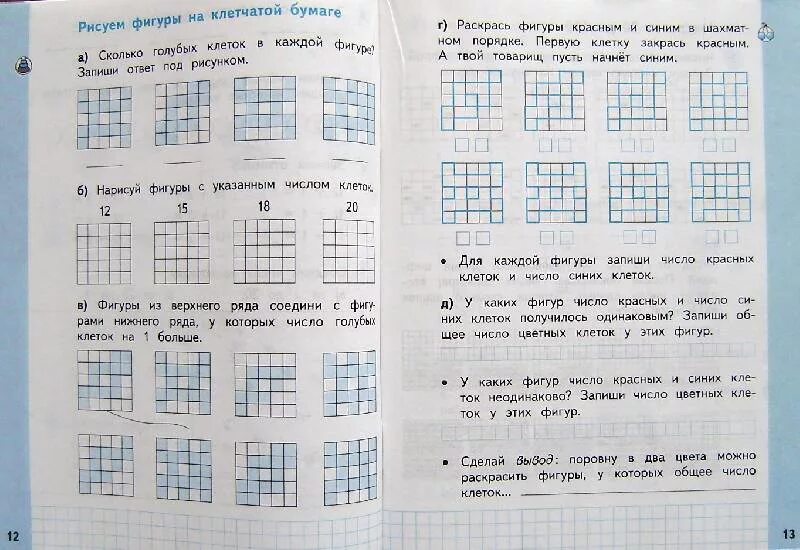 Рисуем фигуры на клетчатой бумаге
а) Сколько голубых клеток в каждой фигуре?
Запиши ответ под рисунком.
б) Нарисуй фигуры с указанным числом клеток.
12 15 18 20
в) Фигуры из верхнего ряда соедини с фигу-
рами нижнего ряда, у которых число голубых
клеток на 1 больше.
12
г) Раскрась фигуры красным и синим в шахмат-
ном порядке. Первую клетку закрась красным.
А твой товарищ пусть начнёт синим.
• Для каждой фигуры запиши число красных
клеток и число синих клеток.
д) У каких фигур число красных и число си-
них клеток получилось одинаковым? Запиши об-
щее число цветных клеток у этих фигур.
• У каких фигур число красных и синих кле-
ток неодинаково? Запиши число цветных кле-
ток у этих фигур.
• Сделай вывод: поровну в два цвета можно
раскрасить фигуры, у которых общее число
клеток...
13